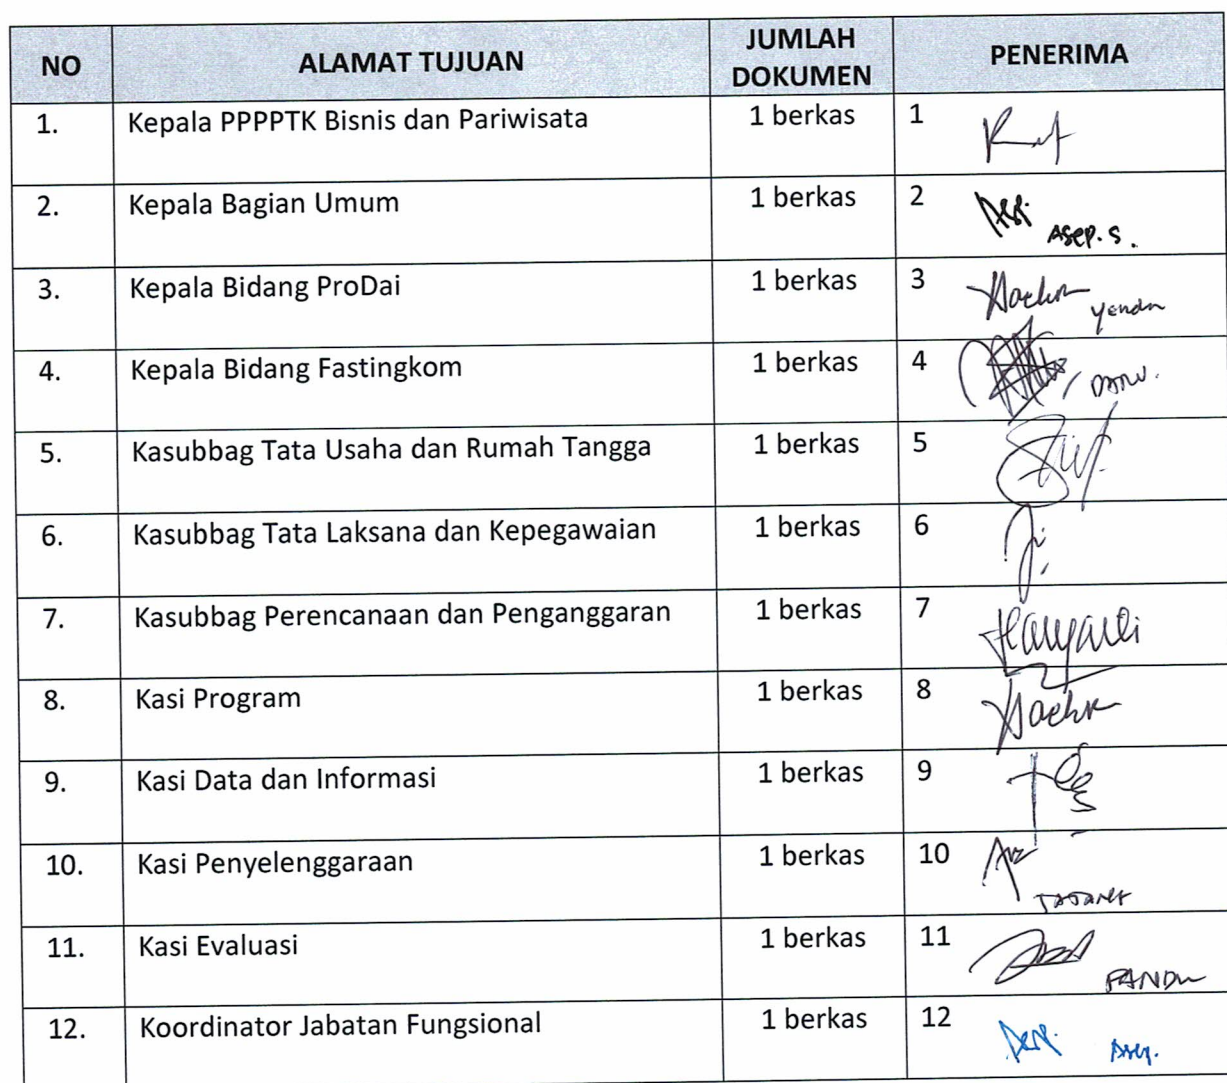 NO ALAMAT TUJUAN JUMLAH DOKUMEN PENERIMA
1. Kepala PPPPTK Bisnis dan Pariwisata 1 berkas 1
2. Kepala Bagian Umum 1 berkas 2 Asep. S.
3. Kepala Bidang ProDai 1 berkas 3
4. Kepala Bidang Fastingkom 1 berkas 4
5. Kasubbag Tata Usaha dan Rumah Tangga 1 berkas 5
6. Kasubbag Tata Laksana dan Kepegawaian 1 berkas 6
7. Kasubbag Perencanaan dan Penganggaran 1 berkas 7
8. Kasi Program 1 berkas 8
9. Kasi Data dan Informasi 1 berkas 9
10. Kasi Penyelenggaraan 1 berkas 10
11. Kasi Evaluasi 1 berkas 11
12. Koordinator Jabatan Fungsional 1 berkas 12